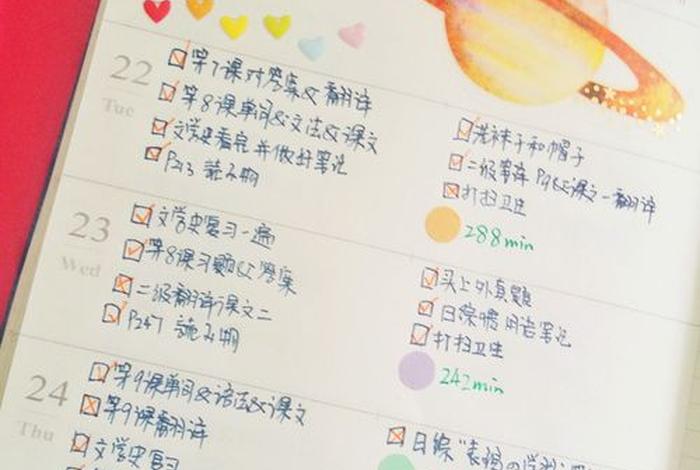 22
Tue
第7课对答案&翻译
第8课单词&文法&课文
文学史看完并做好笔记
P213 読み物
洗袜子和帽子
二级笔译 P9&课文一翻译
打扫卫生
288min
23
Wed
文学史复习一遍
第8课习题&答案
二级翻译课文二
P247 読み物
买上外真题
日综惯用语笔记
打扫卫生
242min
24
Thu
第9课单词&语法&课文
第9课翻译
文学史复习
日综"表现の学习